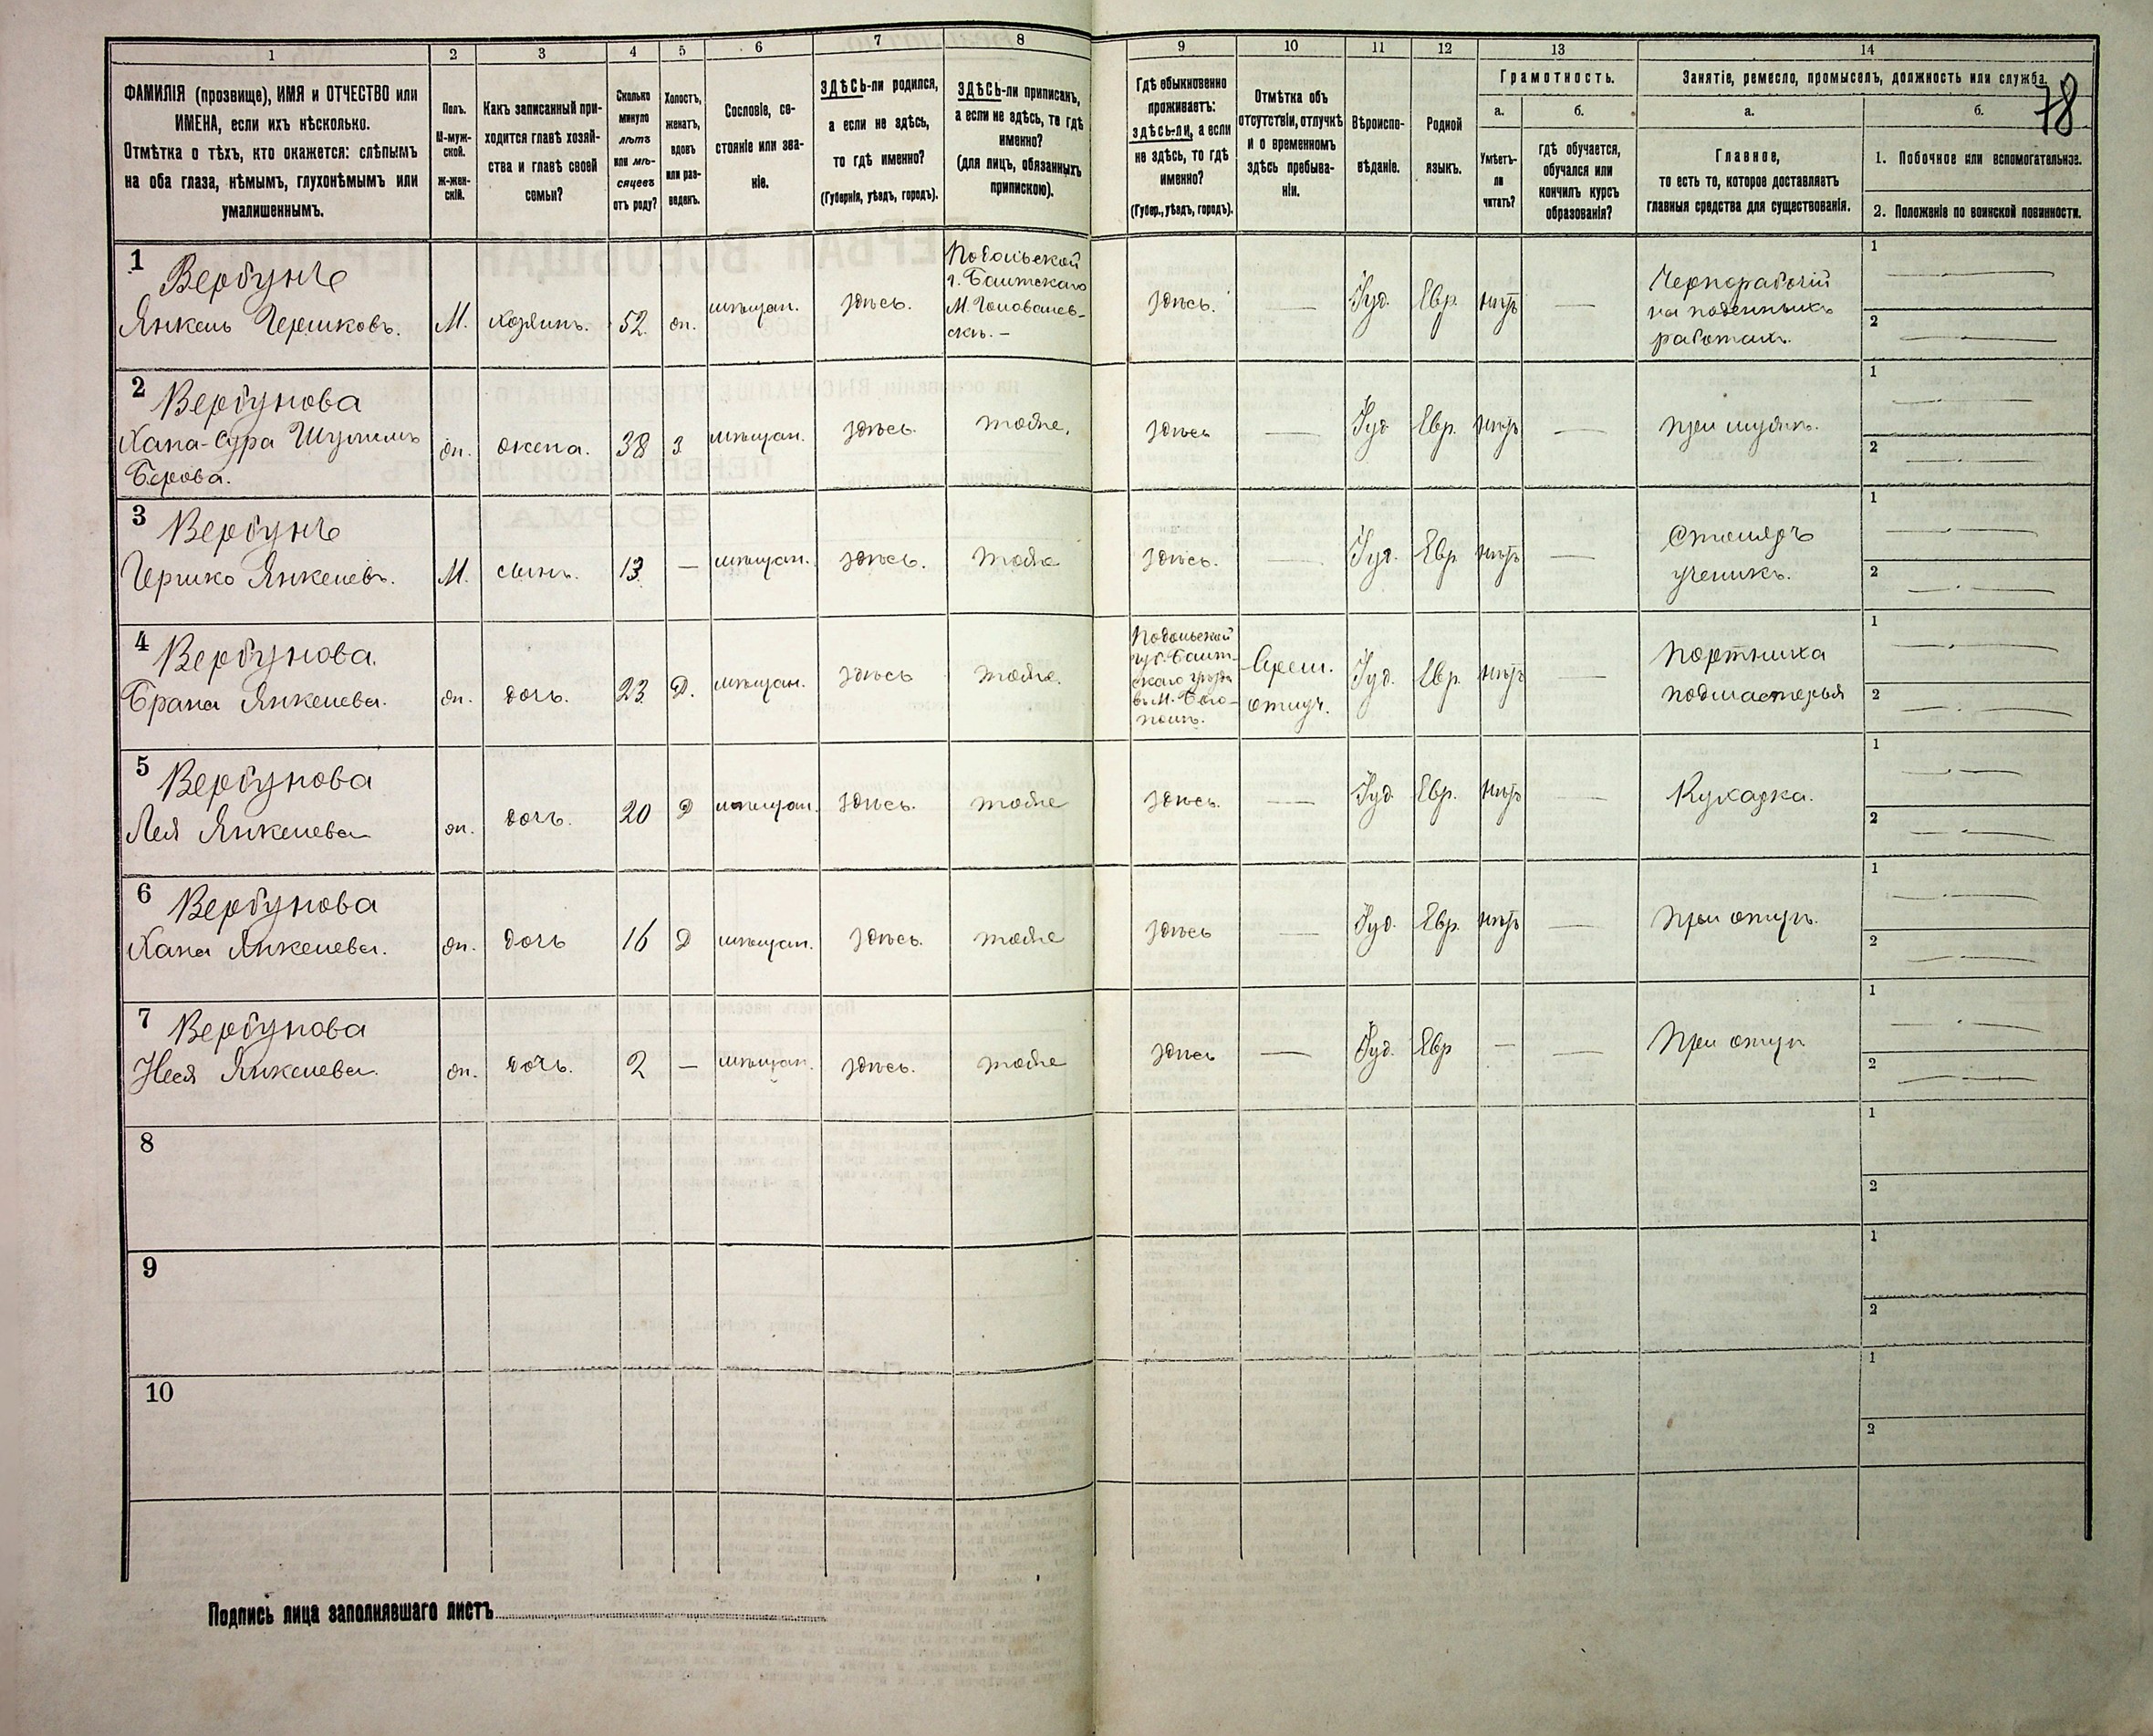 1 2 3 4 5 6 7 8 9 10 11 12 13 14
78
ФАМИЛІЯ (прозвище), ИМЯ и ОТЧЕСТВО или
ИМЕНА, если ихъ нѣсколько.
Отмѣтка о тѣхъ, кто окажется: слѣпымъ
на оба глаза, нѣмымъ, глухонѣмымъ или
умалишеннымъ.
Полъ.
М-муж-
ской.
Ж-жен-
скій.
Какъ записанный при-
ходится главѣ хозяй-
ства и главѣ своей
семьи?
Сколько
минуло
лѣтъ
или мѣ-
сяцевъ
отъ роду?
Холостъ,
женатъ,
вдовъ
или раз-
веденъ.
Сословіе, со-
стояніе или зва-
ніе.
ЗДѢСЬ-ли родился,
а если не здѣсь,
то гдѣ именно?
(Губернія, уѣздъ, городъ).
ЗДѢСЬ-ли приписанъ,
а если не здѣсь, то гдѣ
именно?
(для лицъ, обязанныхъ
припискою).
Гдѣ обыкновенно
проживаетъ:
здѣсь-ли, а если
не здѣсь, то гдѣ
именно?
(Губер., уѣздъ, городъ).
Отмѣтка объ
отсутствіи, отлучкѣ
и о временномъ
здѣсь пребыва-
ніи.
Вѣроиспо-
вѣданіе.
Родной
языкъ.
Грамотность.
а.
Умѣетъ-
ли
читать?
б.
гдѣ обучается,
обучался или
кончилъ курсъ
образованія?
Занятіе, ремесло, промыселъ, должность или служба.
а.
Главное,
то есть то, которое доставляетъ
главныя средства для существованія.
б.
1. Побочное или вспомогательное.
2. Положеніе по воинской повинности.
1
Вербунъ
Янкель Гершковъ.
М.
хозяинъ.
52
жн.
мѣщан.
здѣсь.
Подольской
г. Балтскаго
М. Голованев-
скъ. —
здѣсь.
—
Іуд.
Евр.
нѣтъ
—
Чернорабочій
на поденныхъ
работахъ.
1
2
2
Вербунова
Хана-Сура Шулимъ
Берова.
жн.
жена.
38
з
мѣщан.
здѣсь.
тоже.
здѣсь
—
Іуд
Евр.
нѣтъ
—
при мужѣ.
1
2
3
Вербунъ
Гершко Янкелевъ.
М.
сынъ.
13
—
мѣщан.
здѣсь.
тоже
здѣсь.
—
Іуд.
Евр
нѣтъ
—
Столяръ
ученикъ.
1
2
4
Вербунова.
Брана Янкелева.
жн.
дочь.
23
Д.
мѣщан.
здѣсь
тоже.
Подольской
губ. Балт-
скаго уѣзда
въ М. Бого-
полѣ.
Врем.
отлуч.
Іуд.
Евр.
нѣтъ
—
Портниха
подмастерья
1
2
5
Вербунова
Лея Янкелева
жн.
дочь.
20
Д
мѣщан.
здѣсь.
тоже
здѣсь.
—
Іуд
Евр.
нѣтъ
—
Кухарка.
1
2
6
Вербунова
Хана Янкелева.
жн.
дочь
16
Д
мѣщан.
здѣсь.
тоже
здѣсь
—
Іуд.
Евр.
нѣтъ
—
При отцѣ.
1
2
7
Вербунова
Неся Янкелева.
жн.
дочь.
2
—
мѣщан.
здѣсь.
тоже
здѣсь
—
Іуд.
Евр
—
—
При отцѣ
1
2
8
1
2
9
1
2
10
1
2
Подпись лица заполнявшаго листъ